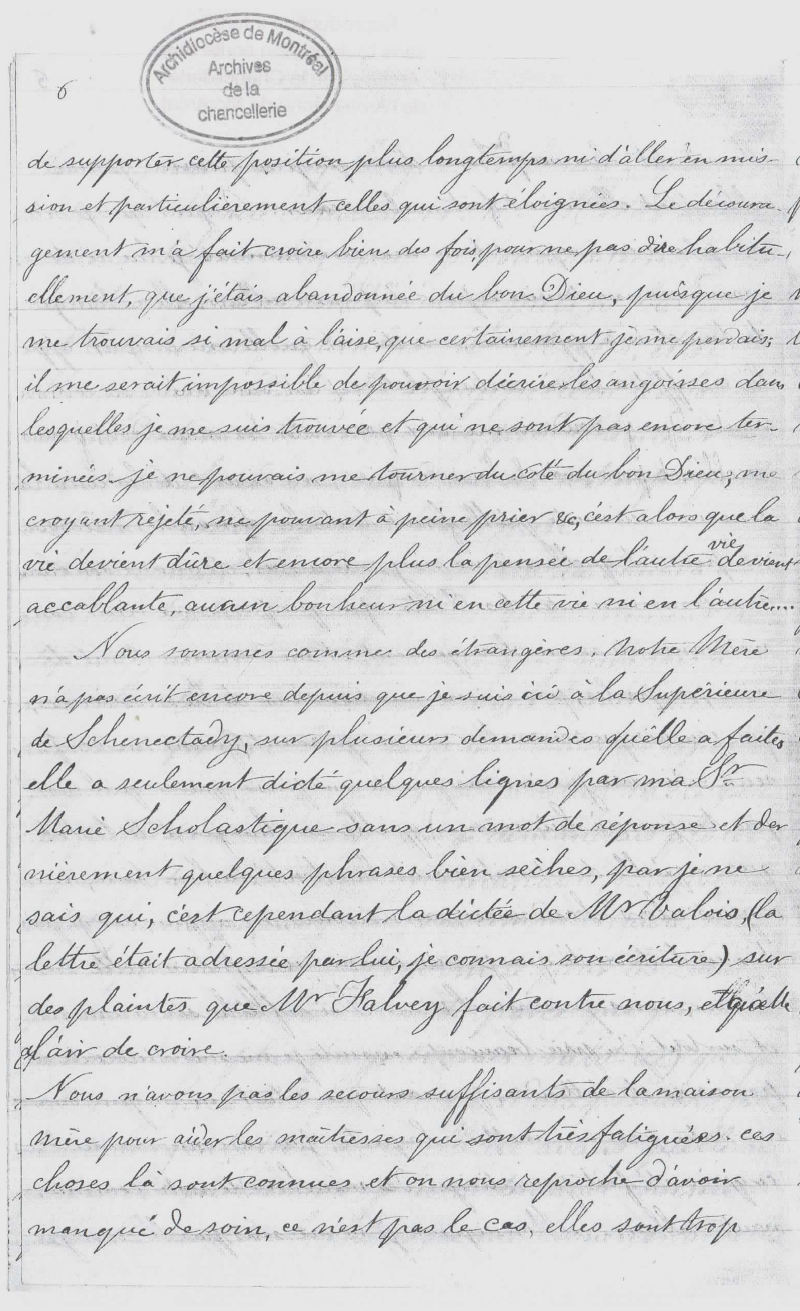 6
Archidiocèse de Montréal
Archives
de la
chancellerie
de supporter cette position plus longtemps ni d'aller en mis-
sion et particulièrement celles qui sont éloignées. Le découra-
gement m'a fait croire bien des fois, pour ne pas dire habitu-
ellement, que j'étais abandonnée du bon Dieu, puisque je
me trouvais si mal à l'aise, que certainement je me perdais;
il me serait impossible de pouvoir décrire les angoisses dans
lesquelles je me suis trouvée et qui ne sont pas encore ter-
minées. je ne pouvais me tourner du côté du bon Dieu, me
croyant rejeté, ne pouvant à peine prier &c, c'est alors que la
vie devient dûre et encore plus la pensée de l'autre vie devient
accablante, aucun bonheur ni en cette vie ni en l'autre....
Nous sommes comme des étrangères. Notre Mère
n'a pas écrit encore depuis que je suis ici à la Supérieure
de Schenectady, sur plusieurs demandes qu'elle a faites
elle a seulement dicté quelques lignes par ma Sr
Marie Scholastique sans un mot de réponse et der
nièrement quelques phrases bien sèches, par je ne
sais qui, c'est cependant la dictée de Mr Valois, (la
lettre était adressée par lui, je connais son écriture) sur
des plaintes que Mr Falvey fait contre nous, et qu'elle
a l'air de croire.
Nous n'avons pas les secours suffisants de la maison
mère pour aider les maîtresses qui sont très fatiguées. ces
choses là sont connues et on nous reproche d'avoir
manqué de soin, ce n'est pas le cas, elles sont trop